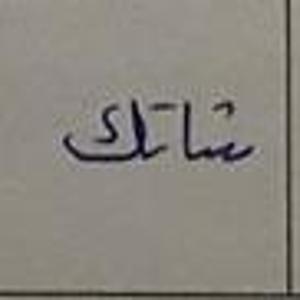 شاتك